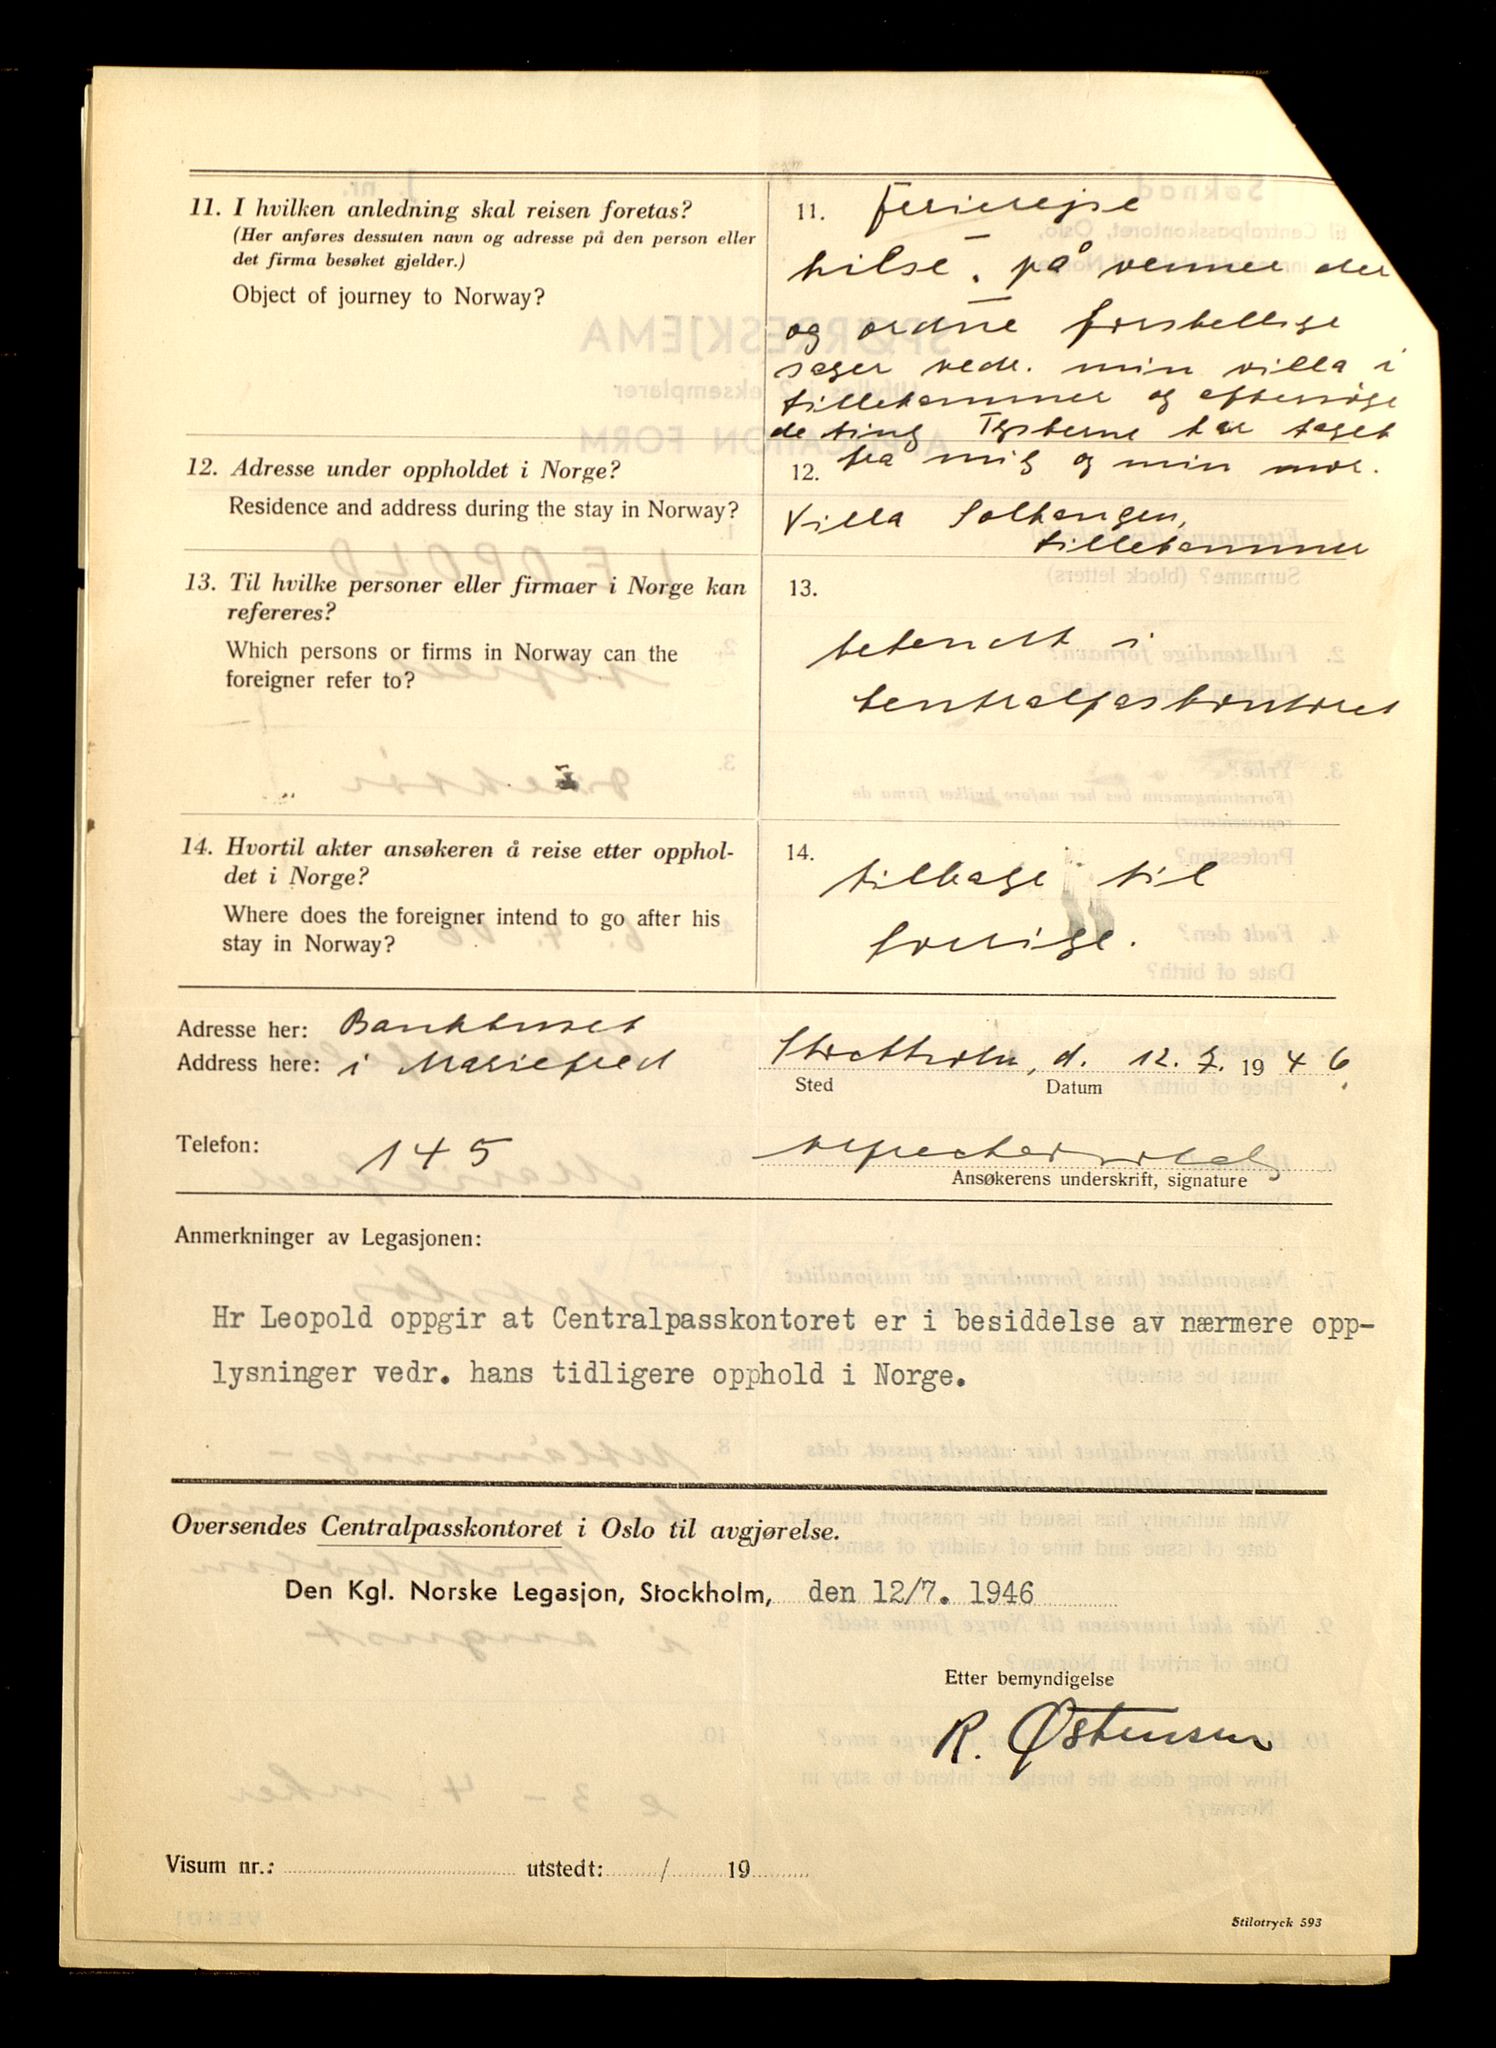 11. I hvilken anledning skal reisen foretas?
(Her anføres dessuten navn og adresse på den person eller
det firma besøket gjelder.)
Object of journey to Norway?
11. Ferierejse
hilse på venner der
og ordne forskellige
sager vedr. min villa i
Lillehammer og eftersøge
de ting Tyskerne har taget
fra mig og min mor.
12. Adresse under oppholdet i Norge?
Residence and address during the stay in Norway?
12.
Villa Solhaugen,
Lillehammer
13. Til hvilke personer eller firmaer i Norge kan
refereres?
Which persons or firms in Norway can the
foreigner refer to?
13.
bekendt i
Centralpaskontoret
14. Hvortil akter ansøkeren å reise etter opphol-
det i Norge?
Where does the foreigner intend to go after his
stay in Norway?
14.
tilbage til
Sverige.
Adresse her: Bankhuset
Address here: i Mariefred
Stockholm, d. 12. 7. 1946
Sted Datum
Telefon: 145
Ansøkerens underskrift, signature
Anmerkninger av Legasjonen:
Hr Leopold oppgir at Centralpasskontoret er i besiddelse av nærmere opp-
lysninger vedr. hans tidligere opphold i Norge.
Oversendes Centralpasskontoret i Oslo til avgjørelse.
Den Kgl. Norske Legasjon, Stockholm, den 12/7. 1946
Etter bemyndigelse
R. Østensen
Visum nr.: utstedt: / 19
Stilotryck 593